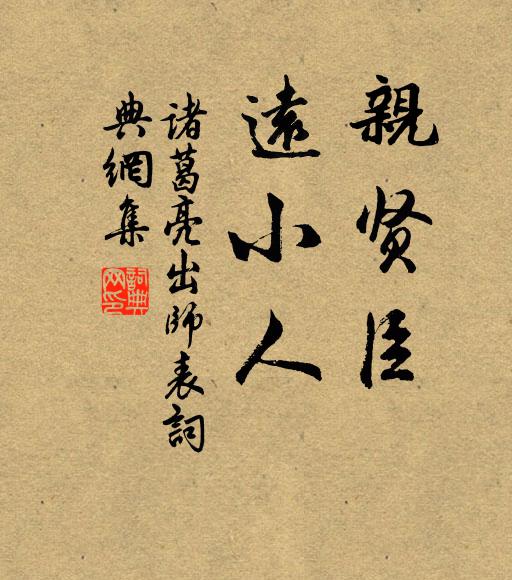 親贤臣
遠小人
诸葛亮出師表詞
典網集
詞典网印